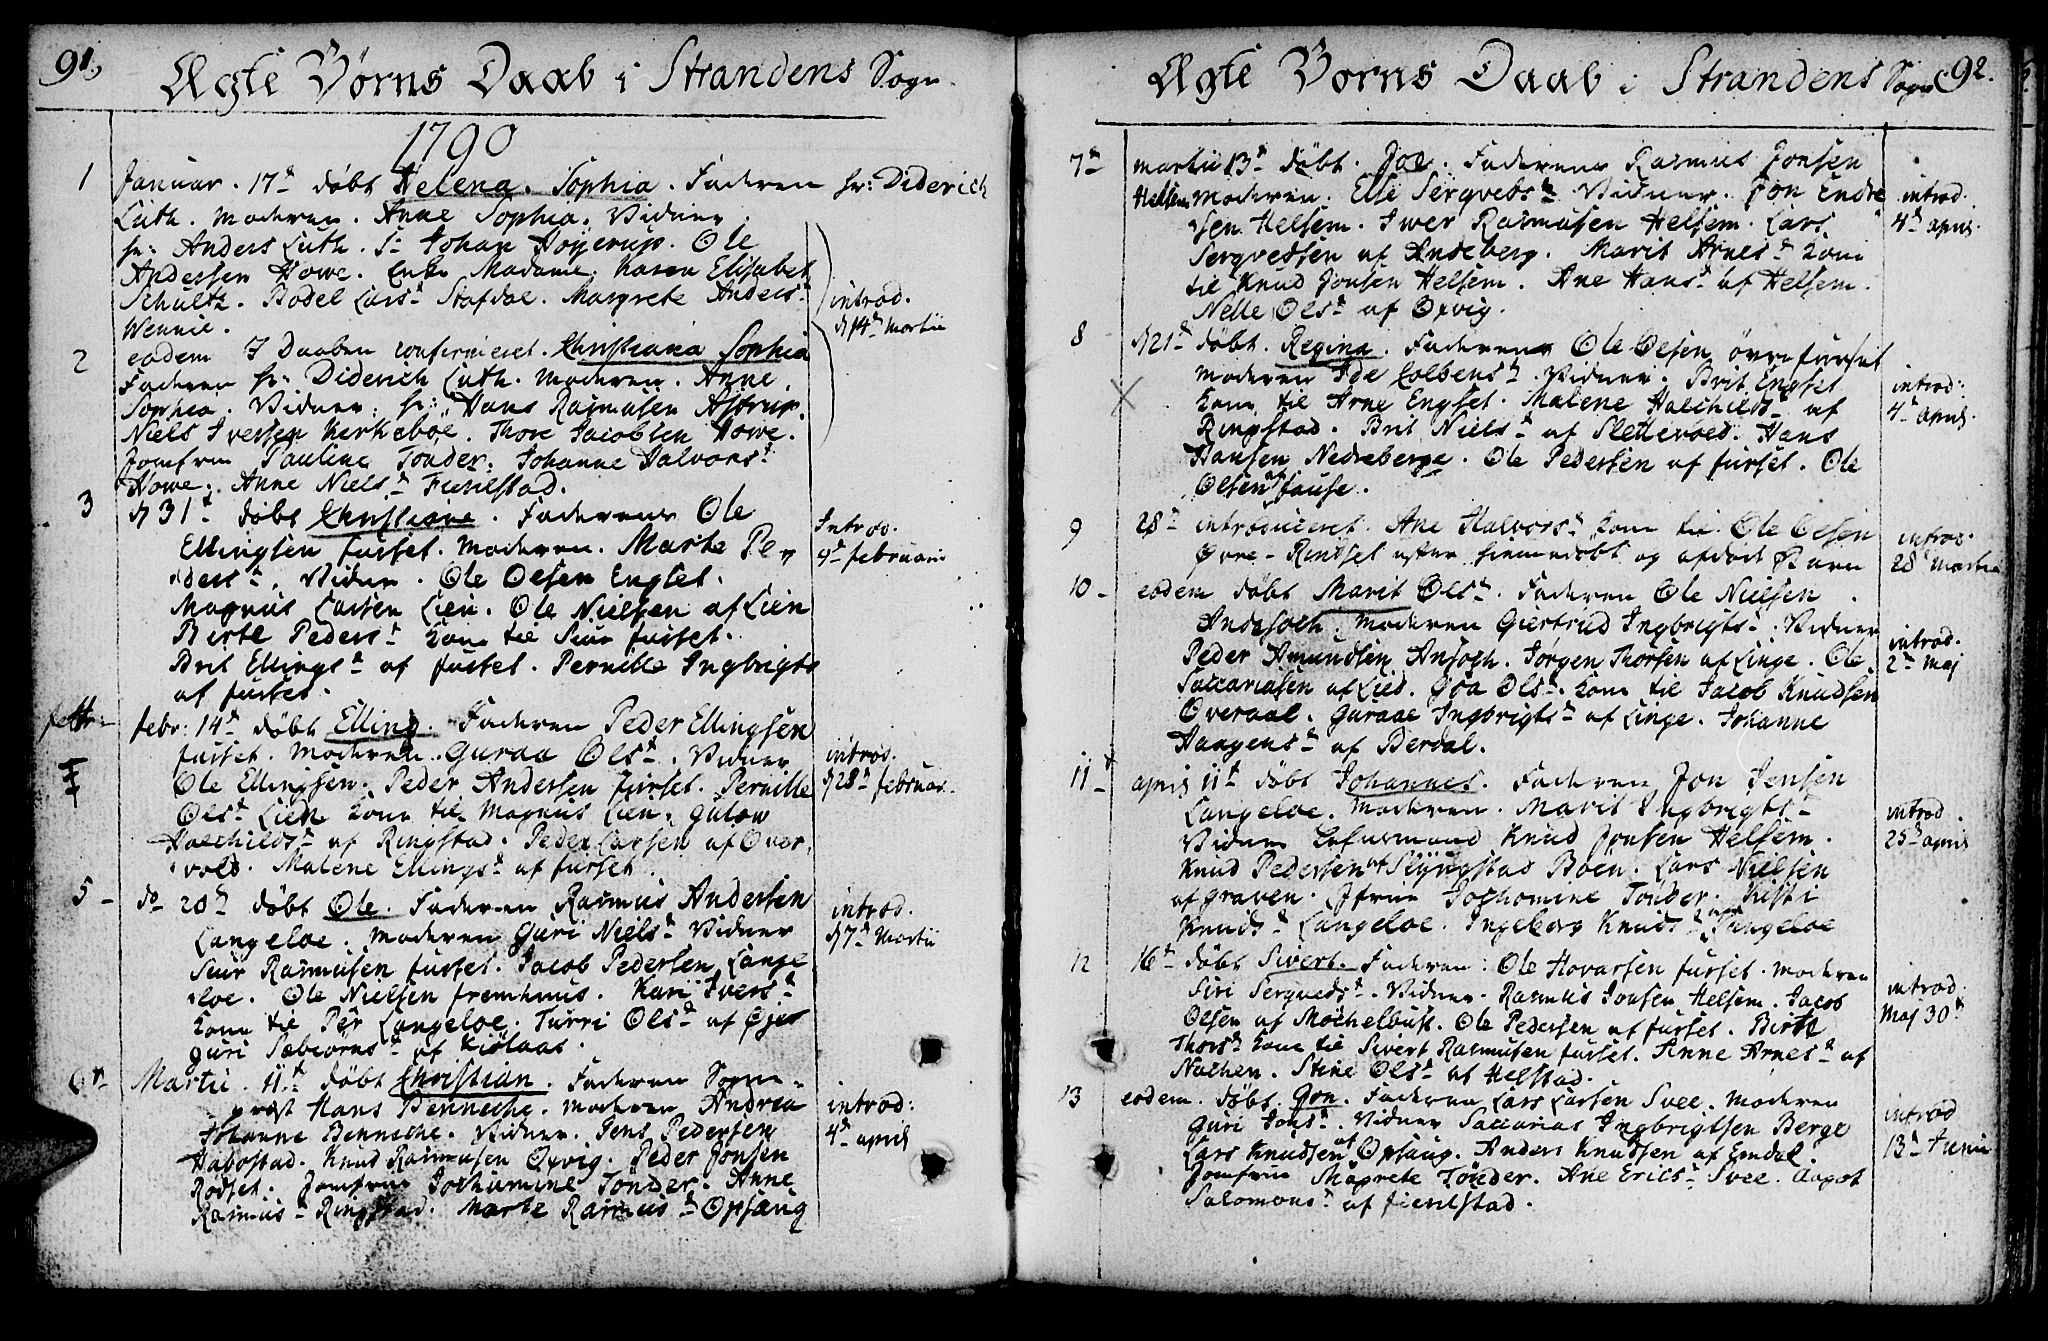 91.
Ægte Børns Daab i Strandens Sogn.
1790
1 Januar. 17de døbt Helena. Sophia. Faderen hr: Diderich
Luth. Moderen. Anne Sophia. Vidner.
hr: Anders Luth. Sr Johan Høyerup. Ole
Andersen Howe. Enke Madame. Karen Elisabet
Schultz. Bodel Larsdr Stafdal. Margrete Andersdr
Wennie.
introd.
d 14de Martii
2 eodem I Daaben confirmeret. Christiana Sophia
Faderen hr: Diderich Luth. Moderen. Anne
Sophia. Vidner. hr: Hans Rasmusen Astrup.
Niels Iversen Kerkeboe. Thore Jacobsen Howe.
Jomfrue Pauline Tønder. Johanne Halvorsdr
Howe. Anne Nielsdr
3 d 31te døbt Christiane. Faderen Ole
Ellingsen furset. Moderen. Marte Pe-
dersdr. Vidner. Ole Olsen Engset.
Magnus Larsen Lien. Ole Nielsen af Lien
Birte Pedersdr Kone til Siur furset.
Brit Ellingsdr af furset. Pernille Ingbrigts
af furset.
Introd.
4de februarii
febr: 14de døbt Elling. Faderen Peder Ellingsen
furset. Moderen. Guraa Olsdr. Vidner
Ole Ellingsen. Peder Andersen furset. Pernille
Olsdr Lien Kone til Magnus Lien. Gulow
Halchildsdr af Ringstad. Peder Larsen af Over-
vold. Malene Ellingsdr af furset.
introd.
d 28de februar.
5 - do 20de døbt Ole. Faderen Rasmus Andersen
Langeloe. Moderen Guri Nielsdr Vidner
Siur Rasmusen furset. Jacob Pedersen Lange
loe. Ole Nielsen fremhuus. Kari Iversdr
Kone til Per Langeloe. Turri Olsdr af
Guri Sæbiørnsdr af Kiölaas.
introd.
d 7de Martii
6 Martii. 11te døbt Christian. Faderen Sogne-
præst Hans Benneche. Moderen Andrea
Johanne Benneche. Vidner. Jens Pedersen
Habostad. Knud Rasmusen Oxvig. Peder Jonsen
Rødset. Jomfrue Jochumine Tønder. Anne
Rasmusdr Ringstad. Marte Rasmusdr Opsang
introd:
4de april
Ægte Børns Daab i Strandens Sogn 92.
7de Martii 13de døbt. Joe. Faderen Rasmus Jonsen
Helsem Moderen. Else Sergvedsdr Vidner. Jon Endre
sen Helsem. Iwer Rasmusen Helsem. Lars
Sergvedsen af Andeberg. Marit Arnesdr Kone
til Knud Jonsen Helsem. Ane Hansdr af Helsem.
Nelle Olsdr af Oxvig.
introd.
4de april.
8 d 21de døbt. Regina. Faderen Ole Olsen øvre furset
Moderen Ide Colbensdr. Vidner. Brit Engset
Kone til Arne Engset. Malene Halchildsdr af
Ringstad. Brit Nielsdr af Slettevold. Hans
Hansen Nedreberge. Ole Pedersen af furset. Ole
Olsen fause.
introd:
4de april
9 28de introduceret. Ane Halvorsdr Kone til Ole Olsen
Øvre-Rindset efter hiemmedøbt og afdødt Barn
introd.
28de Martii
10 - eodem døbt Marit Olsdr. Faderen Ole Nielsen
Andesoch. Moderen Giertrud Ingbrigtsdr. Vidner
Peder Amundsen Ansoch. Jørgen Thorsen af Linge. Ole
Saccariasen af Lied. Goa Olsdr. Kone til Jacob Knudsen
Overaal. Guraae Ingbrigtsdr af Linge. Johanne
Haagensdr af Berdal.
introd.
2de Maj
11 - april 11te døbt Johannes. Faderen Jon Jensen
Langeloe. Moderen. Marit Ingbrigtsdr
Vidner Knud Jonsen Helsem.
Knud Pedersen af Slyngstad Boen. Lars Nielsen
af Graven. Jfrue Jochomine Tønder. Kisti
Knudsdr Langeloe. Ingeborg Knudsdr Langeloe
introd.
25de april
12 16de døbt Sivert. Faderen: Ole Hovarsen furset. Moderen
Siri Sergvedsdr. Vidner. Rasmus Jonsen Helsem. Jacob
Olsen af Mochelbust. Ole Pedersen af furset. Birte
Thorsdr Kone til Sivert Rasmusen furset. Sinne Arnesdr af
Nachen. Stine Olsdr af Helstad.
introd.
Maj 30de
13 eodem. døbt. Gon. Faderen Lars Larsen Svee. Moderen
Guri Jonsdr. Vidner Saccarias Ingbrigtsen Berge
Lars Knudsen af Opsang. Anders Knudsen af Emdal.
Jomfrue Magrete Tønder. Ane Ericsdr Svee. Aagot
Salomonsdr af fierelstad.
introd
13de Junii